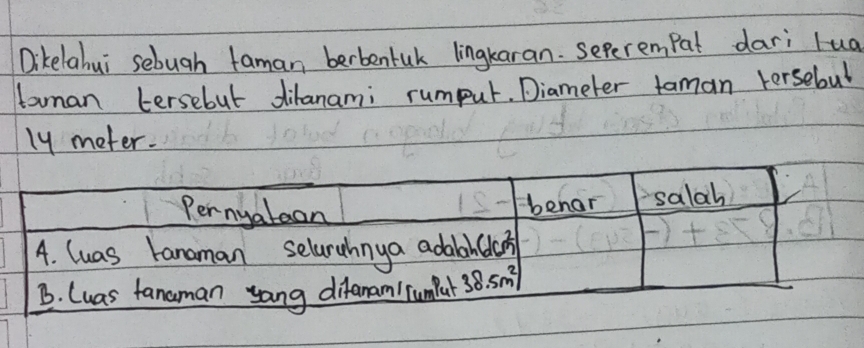 Diketahui sebuah taman berbentuk lingkaran. seperempat dari lua
taman tersebut ditanami rumput. Diameter taman tersebut
14 meter.
Pernyataan benar salah
A. Luas tanaman seluruhnya adalah
B. Luas tanaman yang ditanami rumput 38.5m²